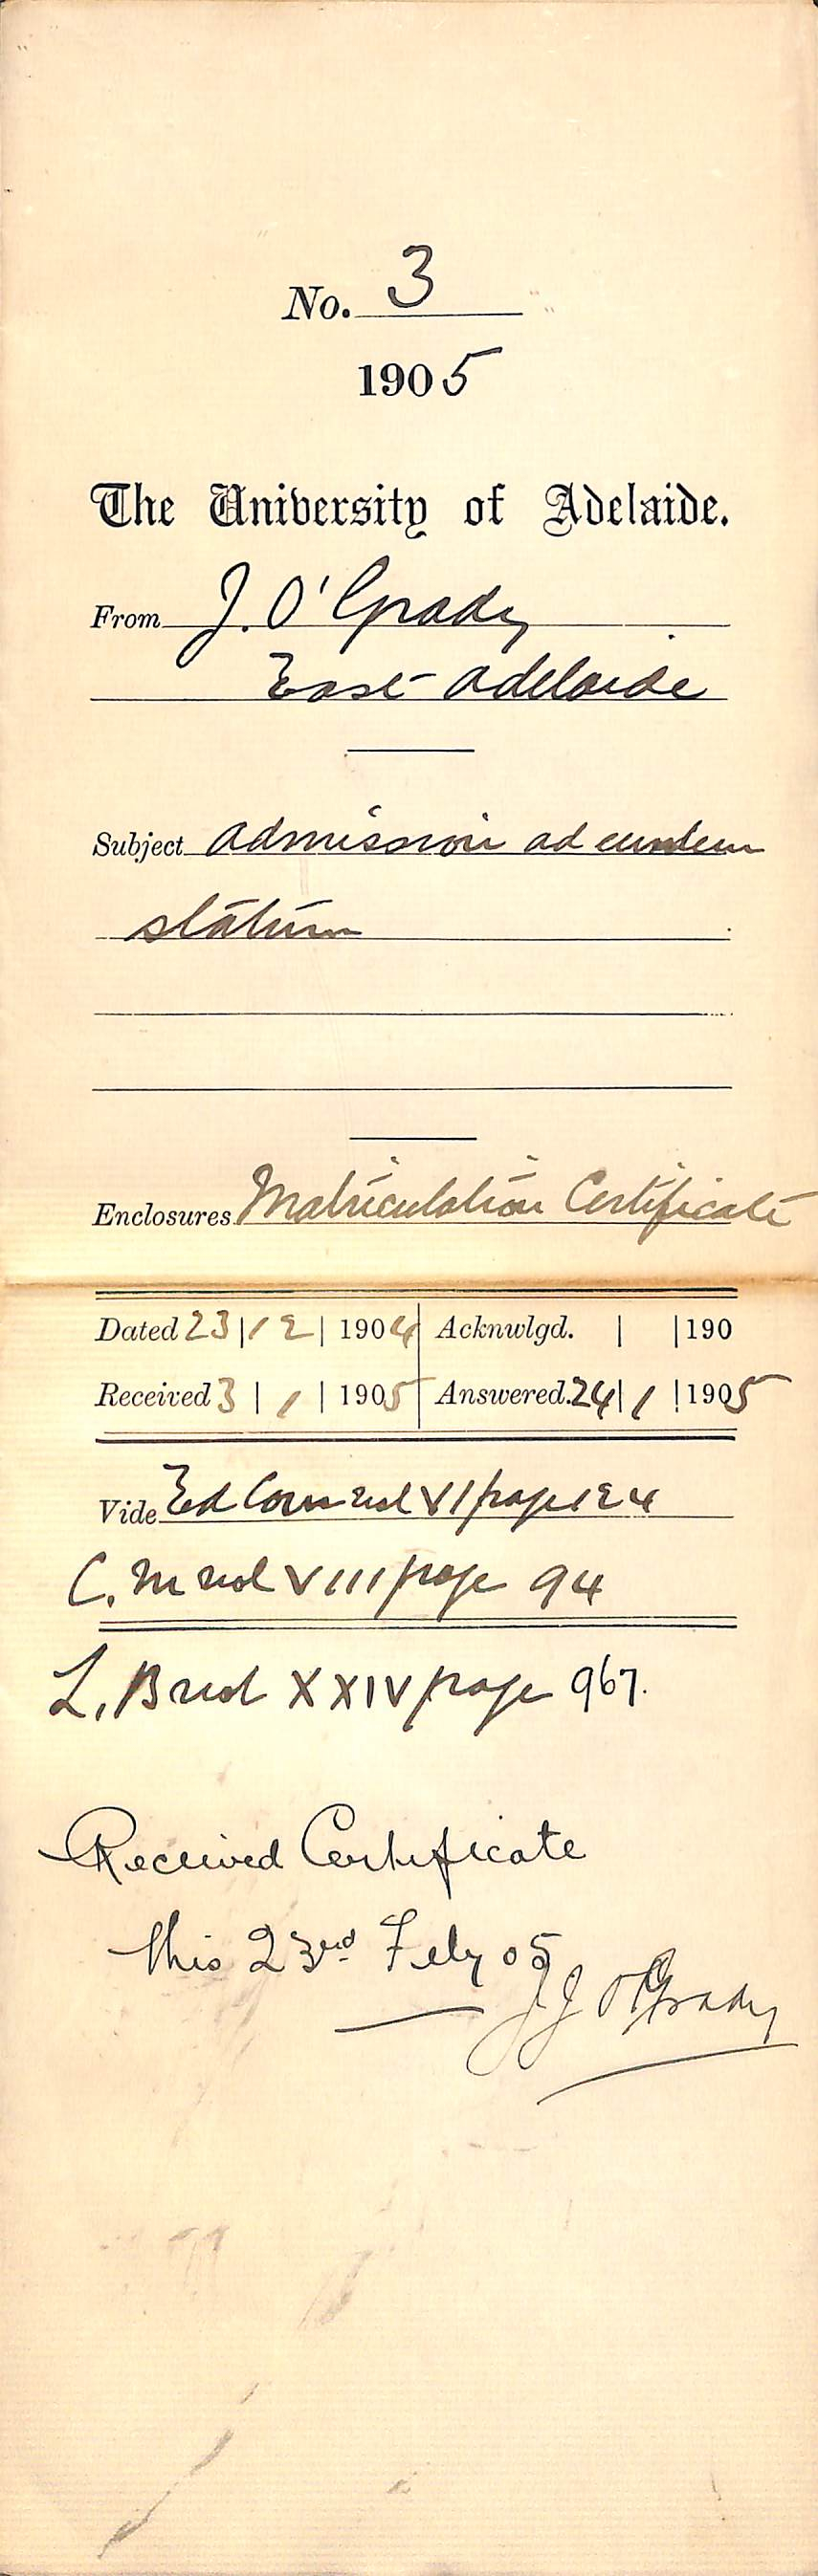 No. 3
1905
The University of Adelaide.
From J. O'Grady
East Adelaide
Subject Admission ad eundem
statum
Enclosures Matriculation Certificate
Dated 23 | 12 | 1904 Acknwlgd. | | 190
Received 3 | 1 | 1905 Answered. 24 | 1 | 1905
Vide Ed Com vol VI page 124
C. M vol VIII page 94
L. B vol XXIV page 967.
Received Certificate
this 23rd Feby 05
J J O'Grady